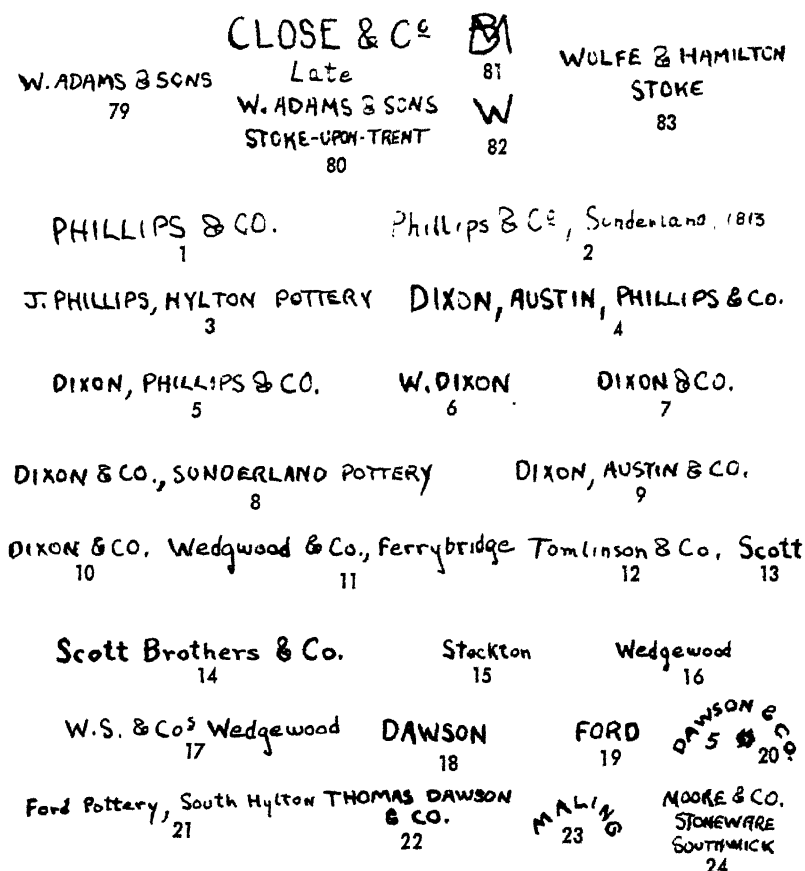 W. ADAMS & SONS
79
CLOSE & Cº
Late
W. ADAMS & SONS
STOKE-UPON-TRENT
80
81
W
82
WOLFE & HAMILTON
STOKE
83
PHILLIPS & CO.
1
Phillips & Cº, Sunderland, 1813
2
J. PHILLIPS, HYLTON POTTERY
3
DIXON, AUSTIN, PHILLIPS & Co.
4
DIXON, PHILLIPS & CO.
5
W. DIXON
6
DIXON & CO.
7
DIXON & CO., SUNDERLAND POTTERY
8
DIXON, AUSTIN & CO.
9
DIXON & CO.
10
Wedgwood & Co., Ferrybridge
11
Tomlinson & Co.
12
Scott
13
Scott Brothers & Co.
14
Stockton
15
Wedgewood
16
W.S. & Coˢ Wedgewood
17
DAWSON
18
FORD
19
DAWSON & CO.
5
20
Ford Pottery, South Hylton
21
THOMAS DAWSON
& CO.
22
MALING
23
MOORE & CO.
STONEWARE
SOUTHWICK
24